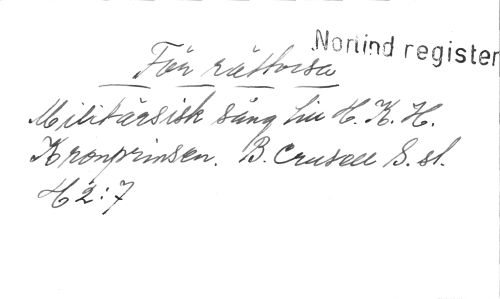 Norlind register
För rättvisa
Militärisk sång till H. K. H.
Kronprinsen. B. Crusell S. sl.
H 2:7